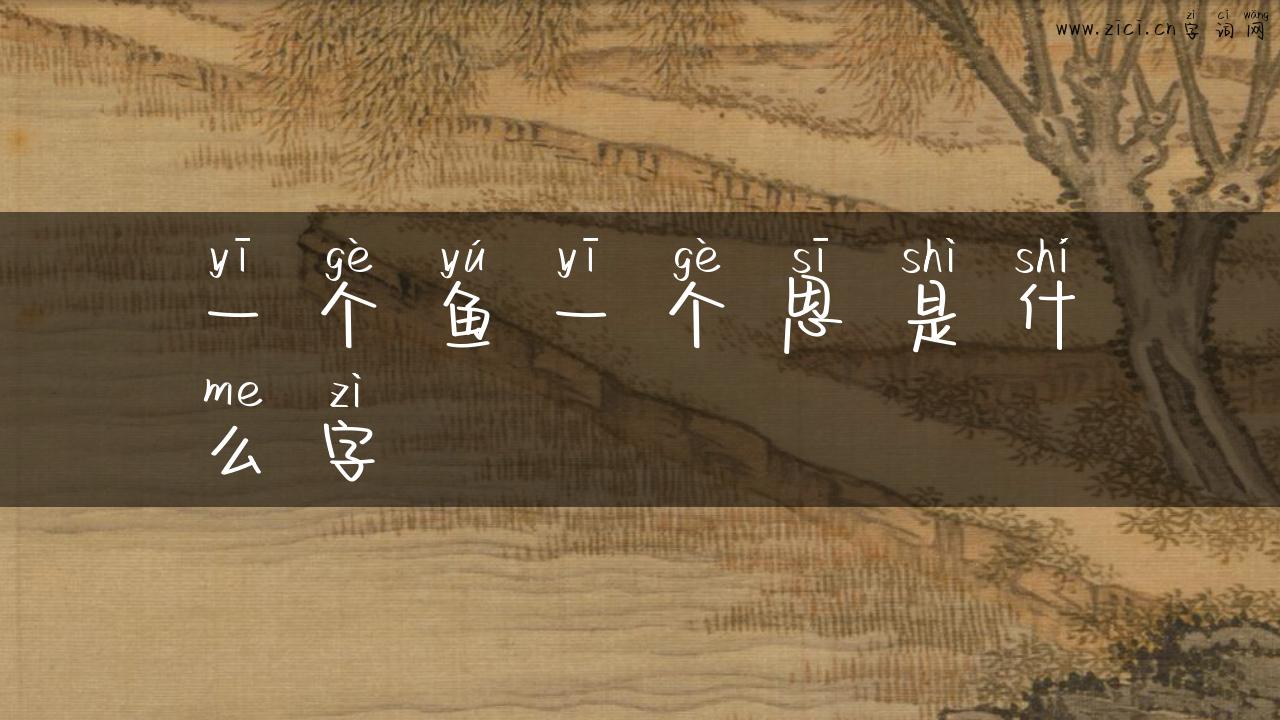 zì cí wǎng
www.zici.cn 字 词 网
yī gè yú yī gè sī shì shí
一 个 鱼 一 个 思 是 什
me zì
么 字